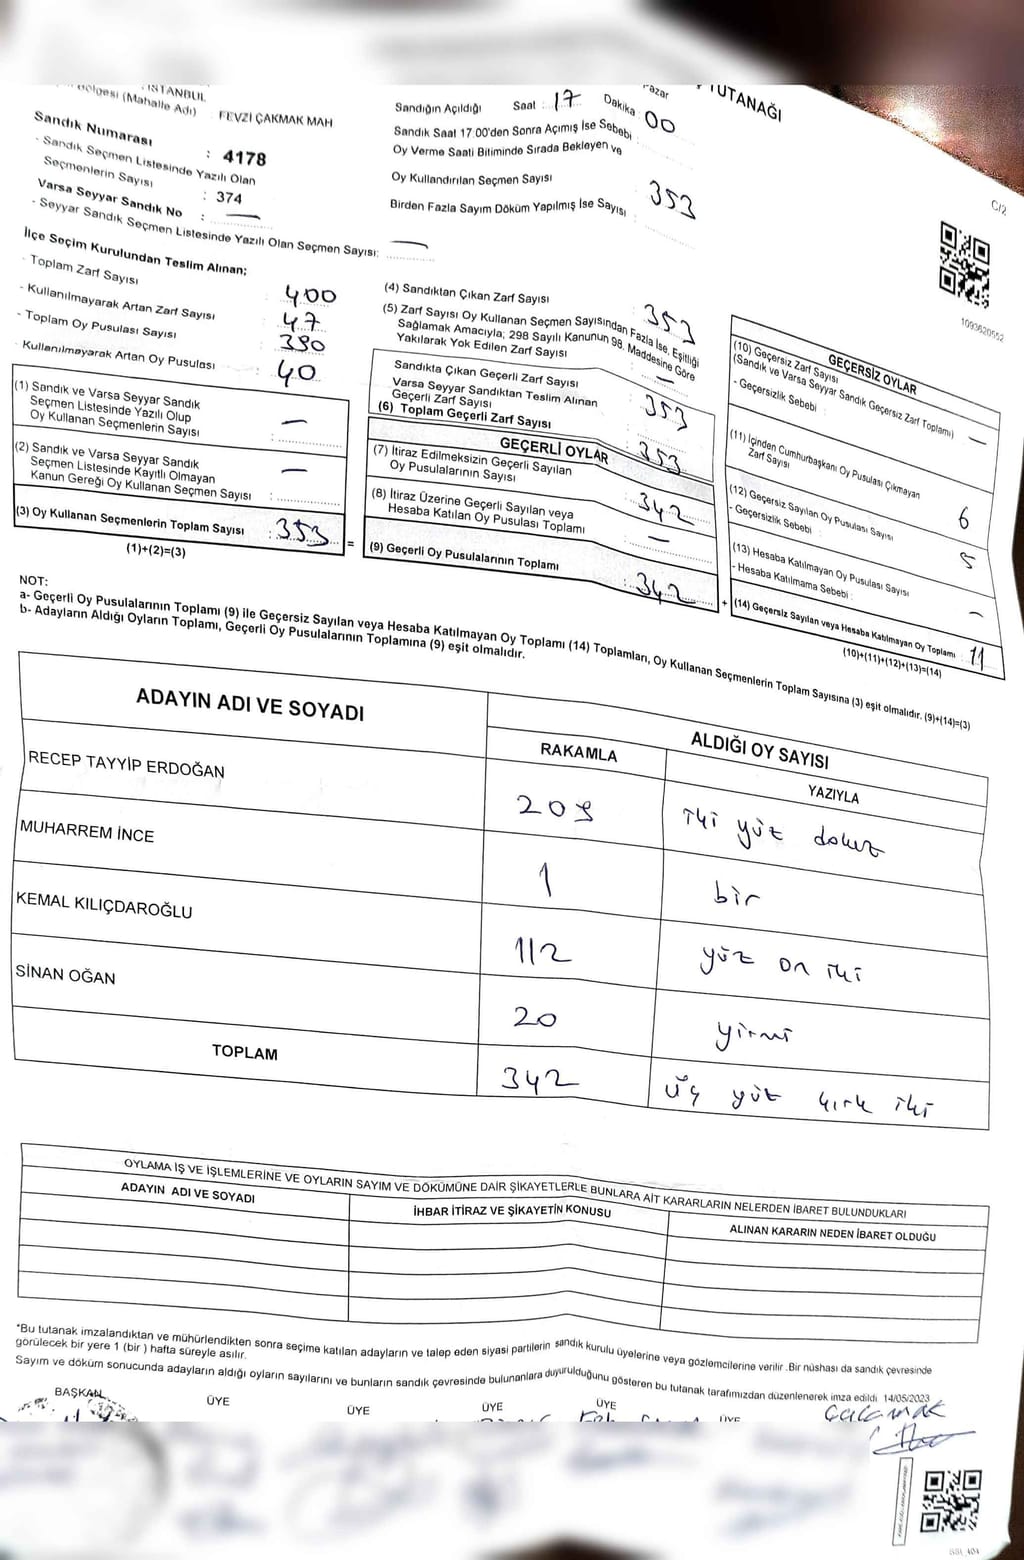 TUTANAĞI
İSTANBUL
Bölgesi (Mahalle Adı) FEVZİ ÇAKMAK MAH
Sandık Numarası : 4178
- Sandık Seçmen Listesinde Yazılı Olan
Seçmenlerin Sayısı : 374
Varsa Seyyar Sandık No : —
- Seyyar Sandık Seçmen Listesinde Yazılı Olan Seçmen Sayısı: —
Pazar
Sandığın Açıldığı Saat : 17 Dakika : 00
Sandık Saat 17:00'den Sonra Açımış İse Sebebi :
Oy Verme Saati Bitiminde Sırada Bekleyen ve
Oy Kullandırılan Seçmen Sayısı : 353
Birden Fazla Sayım Döküm Yapılmış İse Sayısı :
C/2
1093620552
İlçe Seçim Kurulundan Teslim Alınan;
- Toplam Zarf Sayısı : 400
- Kullanılmayarak Artan Zarf Sayısı : 47
- Toplam Oy Pusulası Sayısı : 390
- Kullanılmayarak Artan Oy Pusulası : 40
(1) Sandık ve Varsa Seyyar Sandık
Seçmen Listesinde Yazılı Olup
Oy Kullanan Seçmenlerin Sayısı : —
(2) Sandık ve Varsa Seyyar Sandık
Seçmen Listesinde Kayıtlı Olmayan
Kanun Gereği Oy Kullanan Seçmen Sayısı : —
(3) Oy Kullanan Seçmenlerin Toplam Sayısı : 353 =
(1)+(2)=(3)
(4) Sandıktan Çıkan Zarf Sayısı : 353
(5) Zarf Sayısı Oy Kullanan Seçmen Sayısından Fazla İse, Eşitliği
Sağlamak Amacıyla; 298 Sayılı Kanunun 98. Maddesine Göre
Yakılarak Yok Edilen Zarf Sayısı : —
Sandıkta Çıkan Geçerli Zarf Sayısı : 353
Varsa Seyyar Sandıktan Teslim Alınan
Geçerli Zarf Sayısı
(6) Toplam Geçerli Zarf Sayısı : 353
GEÇERLİ OYLAR
(7) İtiraz Edilmeksizin Geçerli Sayılan
Oy Pusulalarının Sayısı : 342
(8) İtiraz Üzerine Geçerli Sayılan veya
Hesaba Katılan Oy Pusulası Toplamı : —
(9) Geçerli Oy Pusulalarının Toplamı : 342 +
GEÇERSİZ OYLAR
(10) Geçersiz Zarf Sayısı
(Sandık ve Varsa Seyyar Sandık Geçersiz Zarf Toplamı) —
- Geçersizlik Sebebi :
(11) İçinden Cumhurbaşkanı Oy Pusulası Çıkmayan
Zarf Sayısı 6
(12) Geçersiz Sayılan Oy Pusulası Sayısı 5
- Geçersizlik Sebebi :
(13) Hesaba Katılmayan Oy Pusulası Sayısı —
- Hesaba Katılmama Sebebi :
(14) Geçersiz Sayılan veya Hesaba Katılmayan Oy Toplamı : 11
(10)+(11)+(12)+(13)=(14)
NOT:
a- Geçerli Oy Pusulalarının Toplamı (9) ile Geçersiz Sayılan veya Hesaba Katılmayan Oy Toplamı (14) Toplamları, Oy Kullanan Seçmenlerin Toplam Sayısına (3) eşit olmalıdır. (9)+(14)=(3)
b- Adayların Aldığı Oyların Toplamı, Geçerli Oy Pusulalarının Toplamına (9) eşit olmalıdır.
ADAYIN ADI VE SOYADI ALDIĞI OY SAYISI
RAKAMLA YAZIYLA
RECEP TAYYİP ERDOĞAN 209 iki yüz dokuz
MUHARREM İNCE 1 bir
KEMAL KILIÇDAROĞLU 112 yüz on iki
SİNAN OĞAN 20 yirmi
TOPLAM 342 üç yüz kırk iki
OYLAMA İŞ VE İŞLEMLERİNE VE OYLARIN SAYIM VE DÖKÜMÜNE DAİR ŞİKAYETLERLE BUNLARA AİT KARARLARIN NELERDEN İBARET BULUNDUKLARI
ADAYIN ADI VE SOYADI İHBAR İTİRAZ VE ŞİKAYETİN KONUSU ALINAN KARARIN NEDEN İBARET OLDUĞU
*Bu tutanak imzalandıktan ve mühürlendikten sonra seçime katılan adayların ve talep eden siyasi partilerin sandık kurulu üyelerine veya gözlemcilerine verilir .Bir nüshası da sandık çevresinde
görülecek bir yere 1 (bir ) hafta süreyle asılır.
Sayım ve döküm sonucunda adayların aldığı oyların sayılarını ve bunların sandık çevresinde bulunanlara duyurulduğunu gösteren bu tutanak tarafımızdan düzenlenerek imza edildi 14/05/2023
BAŞKAN ÜYE ÜYE ÜYE ÜYE ÜYE